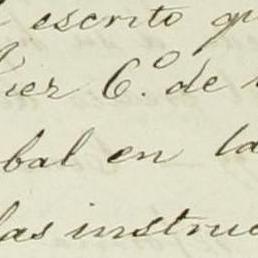 escrito qu
ier 6.º de
bal en la
las instruc